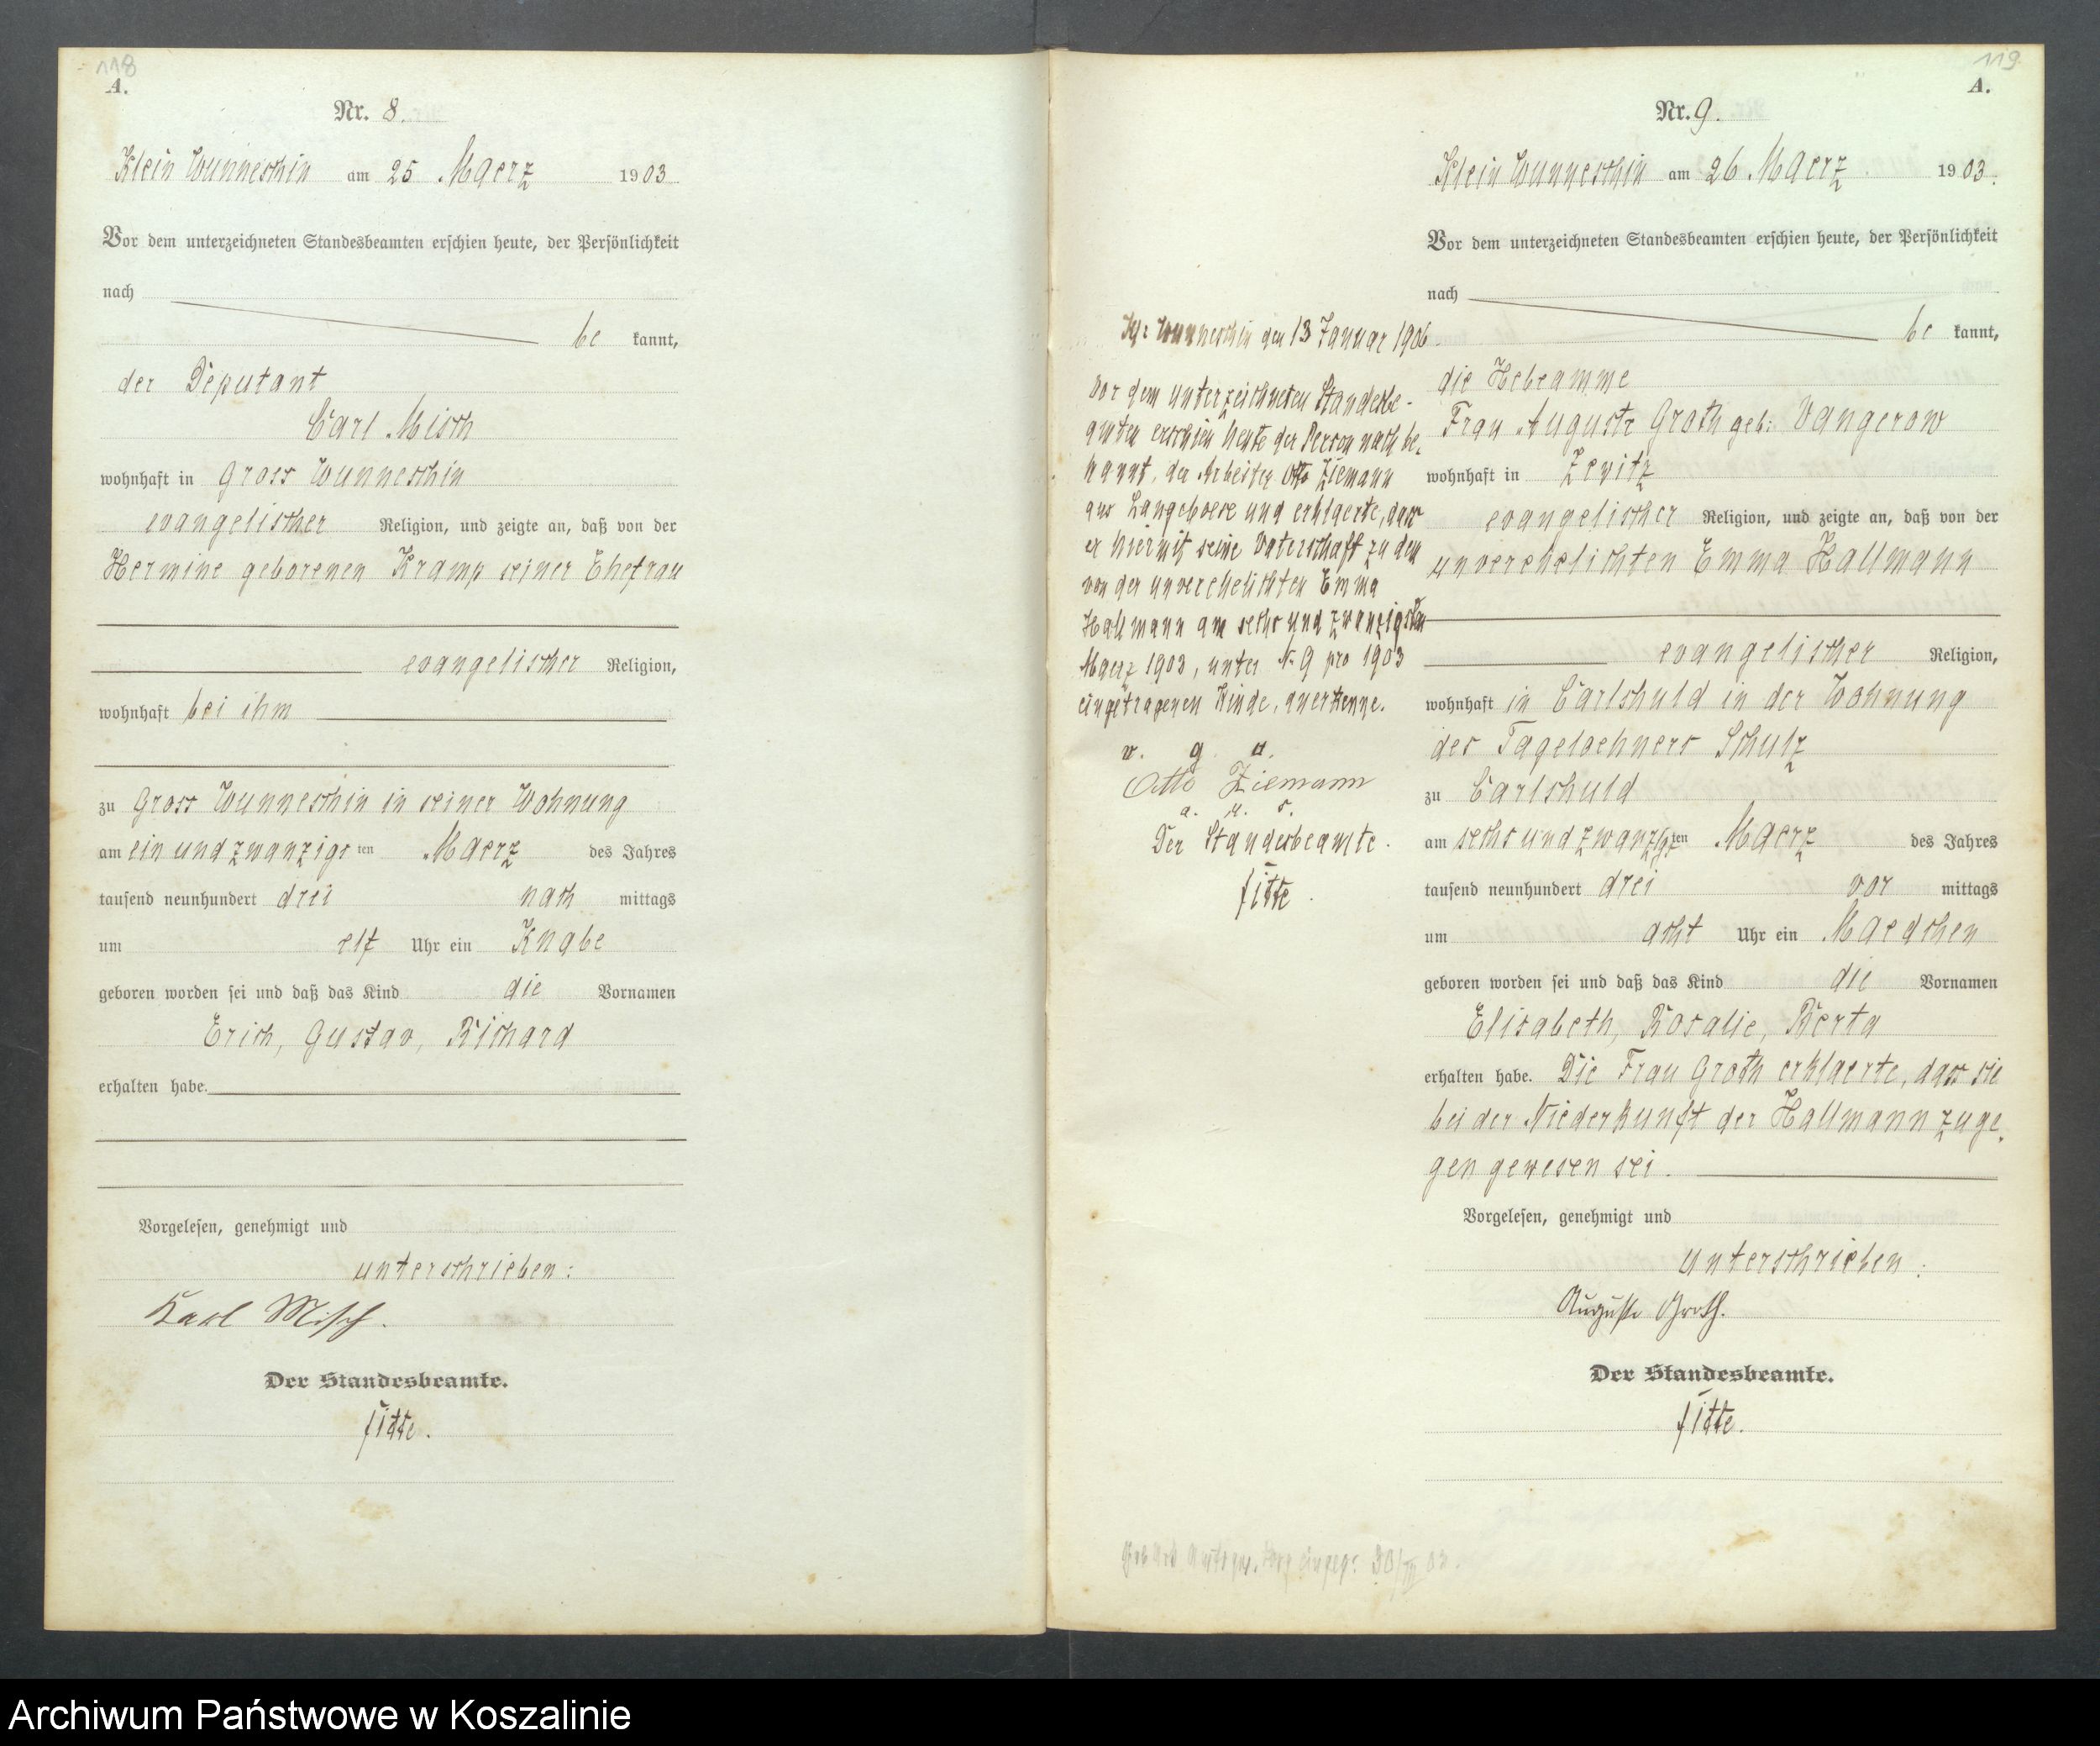 118
A.
Nr. 8.
Klein Wunneschin am 25 Maerz 1903
Vor dem unterzeichneten Standesbeamten erschien heute, der Persönlichkeit
nach
be kannt,
der Deputant
Carl Misch
wohnhaft in Gross Wunneschin
evangelischer Religion, und zeigte an, daß von der
Hermine geborenen Kramp seiner Ehefrau
evangelischer Religion,
wohnhaft bei ihm
zu Gross Wunneschin in seiner Wohnung
am ein und zwanzigs ten Maerz des Jahres
tausend neunhundert drei nach mittags
um elf Uhr ein Knabe
geboren worden sei und daß das Kind die Vornamen
Erich, Gustav, Richard
erhalten habe.
Vorgelesen, genehmigt und
unterschrieben:
Karl Misch.
Der Standesbeamte.
Fitte.
119
A.
Nr. 9.
Klein Wunneschin am 26 Maerz 1903.
Vor dem unterzeichneten Standesbeamten erschien heute, der Persönlichkeit
nach
be kannt,
die Hebeamme
Frau Auguste Groth geb: Vangerow
wohnhaft in Zewitz
evangelischer Religion, und zeigte an, daß von der
unverehelichten Emma Hallmann
evangelischer Religion,
wohnhaft in Carlshuld in der Wohnung
des Tageloehners Schulz
zu Carlshuld
am sechs und zwanzigsten Maerz des Jahres
tausend neunhundert drei vor mittags
um acht Uhr ein Maedchen
geboren worden sei und daß das Kind die Vornamen
Elisabeth, Rosalie, Berta
erhalten habe. Die Frau Groth erklaerte, dass sie
bei der Niederkunft der Hallmann zuge-
gen gewesen sei.
Vorgelesen, genehmigt und
unterschrieben:
Auguste Groth.
Der Standesbeamte.
Fitte.
Kl: Wunneschin den 13 Januar 1906.
Vor dem unterzeichneten Standesbe-
amten erschien heute der Person nach be-
kannt, der Arbeiter Otto Ziemann
aus Langeboese und erklaerte, dass
er hiermit seine Vaterschaft zu dem
von der unverehelichten Emma
Hallmann am sechs und zwanzigsten
Maerz 1903, unter N. 9 pro 1903
eingetragenen Kinde, anerkenne.
v. g. u.
Otto Ziemann
a. u. s.
Der Standesbeamte.
Fitte.
30/III 03.
Archiwum Państwowe w Koszalinie